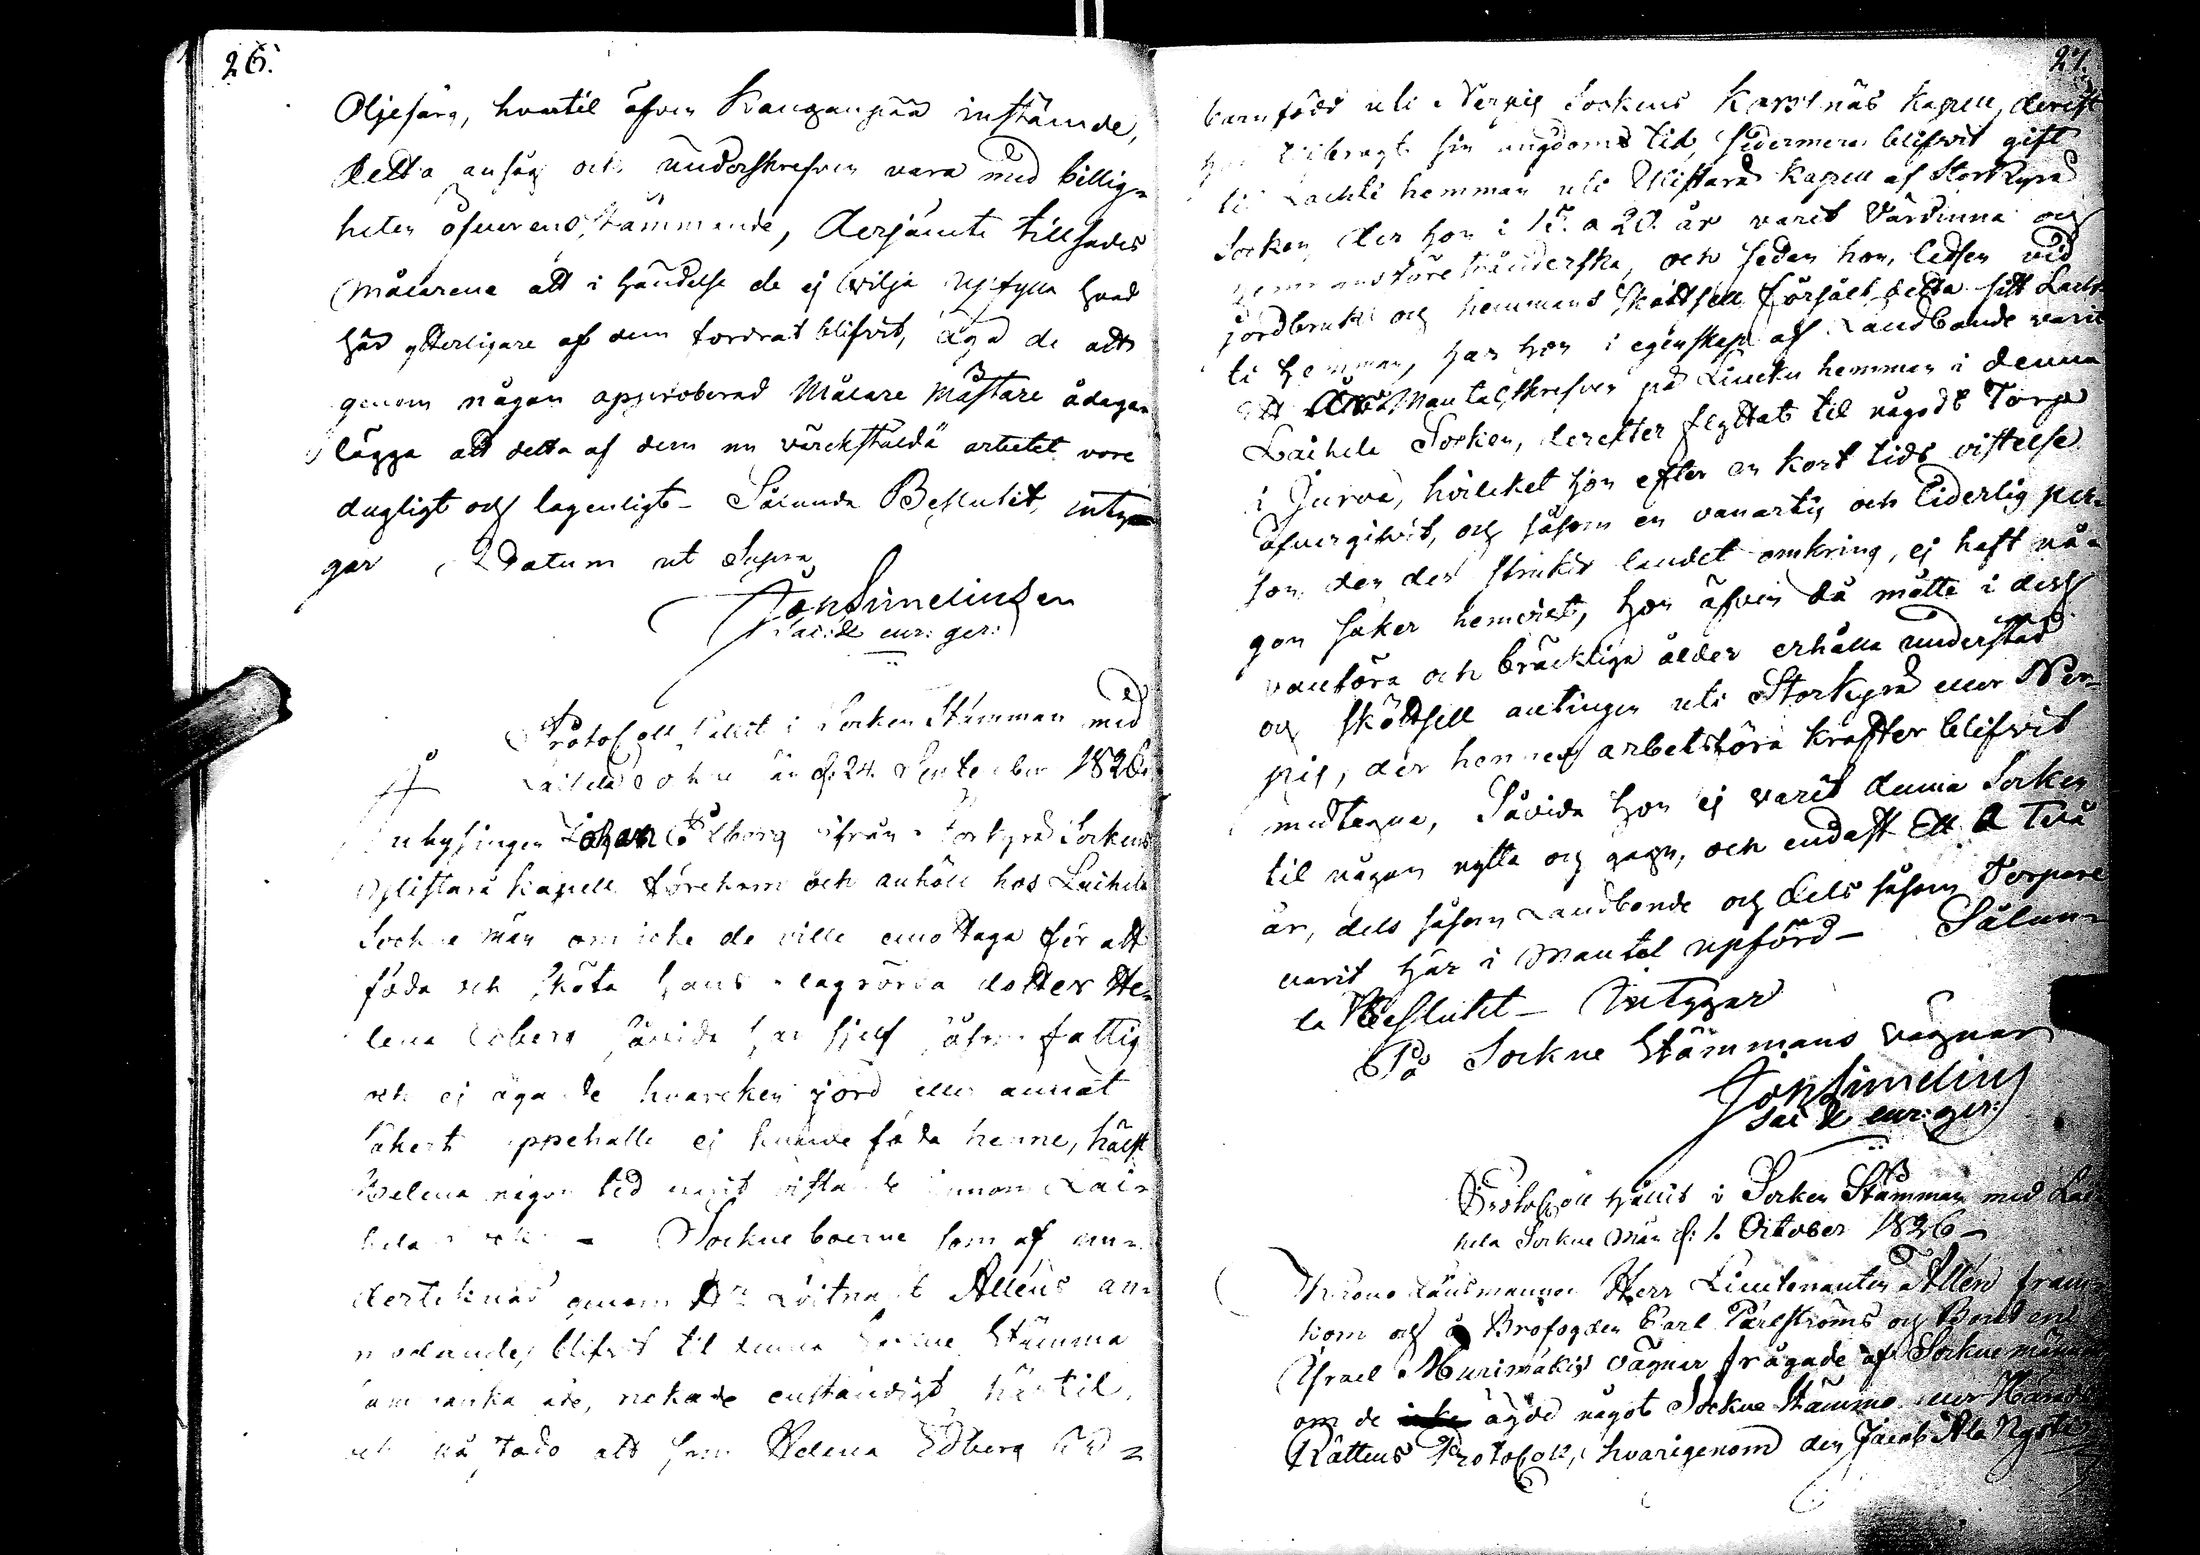 26.
Oljefärg, hvartil äfven Kauganpää instämde,
detta ansåg och underskrefven vara med billig-
heten öfverensstämmande, derjämte tillsades
Målarena att i händelse de ej vilja upfylla hvad
här ytterligare af dem fordrat blifvit, äga de att
genom någon approberad Målare Mästare ådaga-
lägga att detta af dem nu värckstälda arbetet vore
dugligt och lagenligt – Sålunda Beslutit, inty-
gar Datum ut Supra
Jon Simelius
Protocoll hållit i Socken Stämman med
Laihela Sokne män d: 24 September 1826.
Inhysingen Johan Edberg ifrån Storkyro Sockens
Ylistaro Kapell förekom och anhöll hos Laihela
Sockne Män om icke de ville emottaga för att
föda och sköta hans lagrörda dotter He-
lena Edberg såvida han sjelf såsom fattig
och ej ägande hvarcken jord eller annat
säkert uppehälle ej kunde föda henne, hälst
Helena någon tid varit vistande innom Lai-
hela – Sockneboerne som af un-
dertecknad genom Hr Löitnant Alléns an-
modande, blifvit til denna Sockne Stämma
samankallade, nekade enständigt härtil,
och påstodo att som Helena Edberg är
27.
barnfödd uti Nerpis Sockens Korsnäs Kapell, derest
tilbragt sin ungdoms tid, sedermera blifvit gift
til Lachti hemman uti Ylistaro Kapell af Storkyro
Socken der hon i 15 a 20 år varit Värdinna och
och sedan hon, ledsen vid
jordbruk och hemmans skötsell försålt detta sitt Lach-
ti hemman, har hon i egenskap af Landbonde varit
ett År Mantalskrefven på hemman i denna
Laihela Socken, derefter flyttat til något Torp
i Jurva, hvilcket hon efter en kort tids vistelse
öfvergivit, och såsom en vanartig och liderlig per-
son der des strukit landet omkring, ej haft nå-
gon säker hemvist, hon äfven då måtte i dess
vanföra och bräckliga ålder erhålla understöd
och skötsell antingen uti Storkyro eller Ner-
pis, der hennes arbetsföra kräfter blifvit
medtagne, Såvida hon ej varit denna Socken
til någon nytta og gagn, och endast Ett a Två
år, dels såsom Landbonde och dels såsom Torpare
varit här i Mantal upförd – Sålun-
da Beslutit – Intygar
På Sockne Stämmans vägnar
Jon Simelius
Protocoll hållit i Socken Stämman med Lai-
hela Sockne Män d: 1 October 1826 –
Krono Länsmannen Herr Lieutenanten Allén fram-
kom och å Brofogden Carl Pärlströms och Bonden
Israel Murimäkis vägnar frågade af Socknemännen
om de ägde något Sockne Stämmo eller Härads
Rättens Protocoll, hvarigenom den Jacob Ala